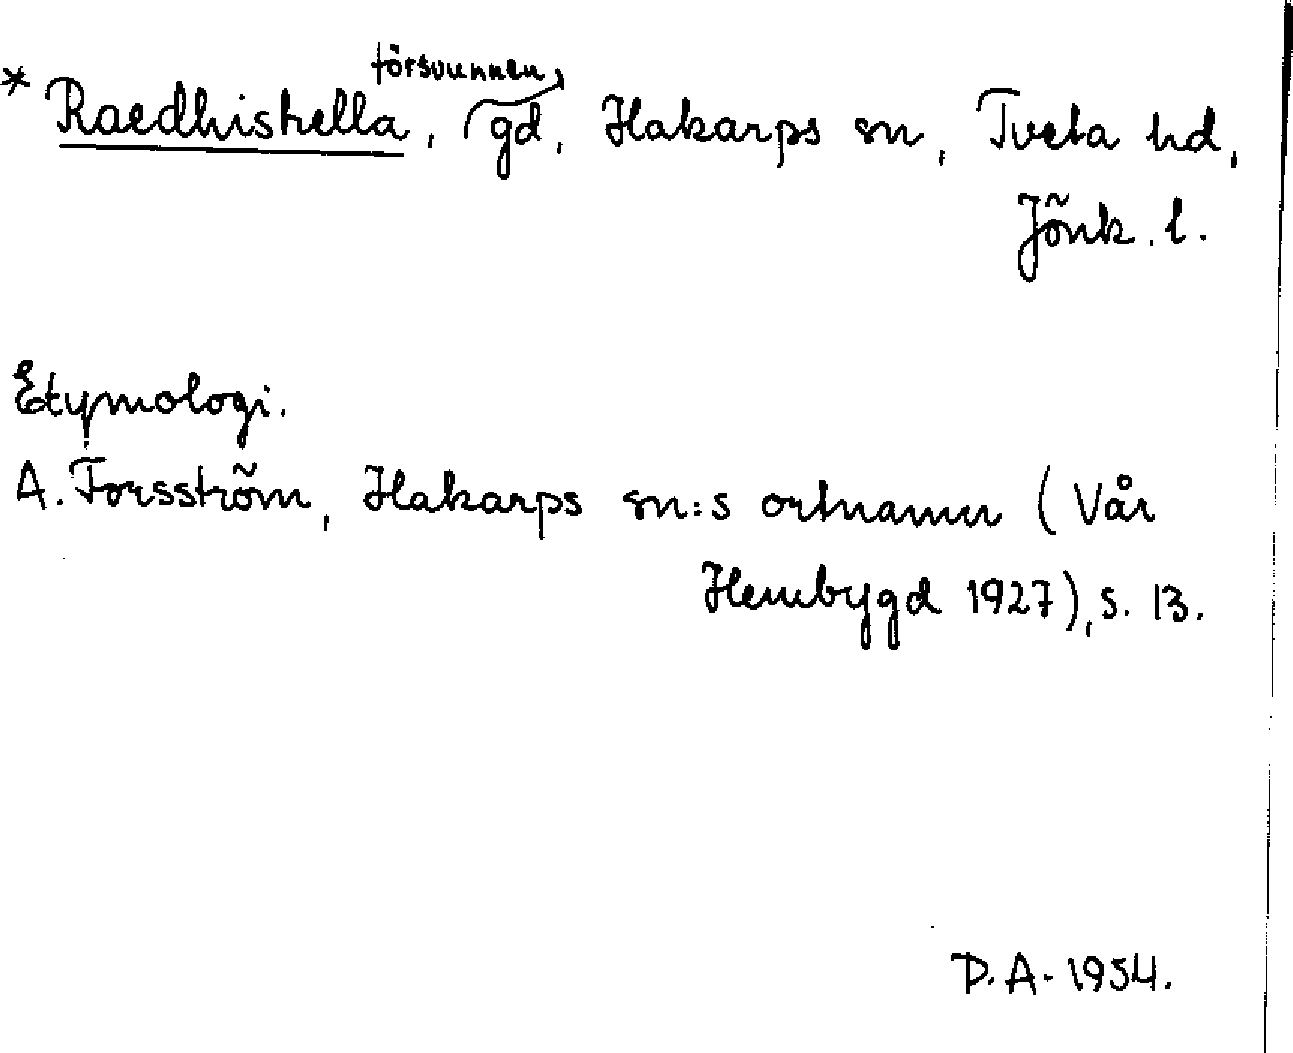 * Raedhiskella, försvunnen gd, Hakarps sn, Tveta hd,
Jönk. l.
Etymologi.
A. Forsström, Hakarps sn:s ortnamn (Vår
Hembygd 1927), s. 13.
D.A. 1954.